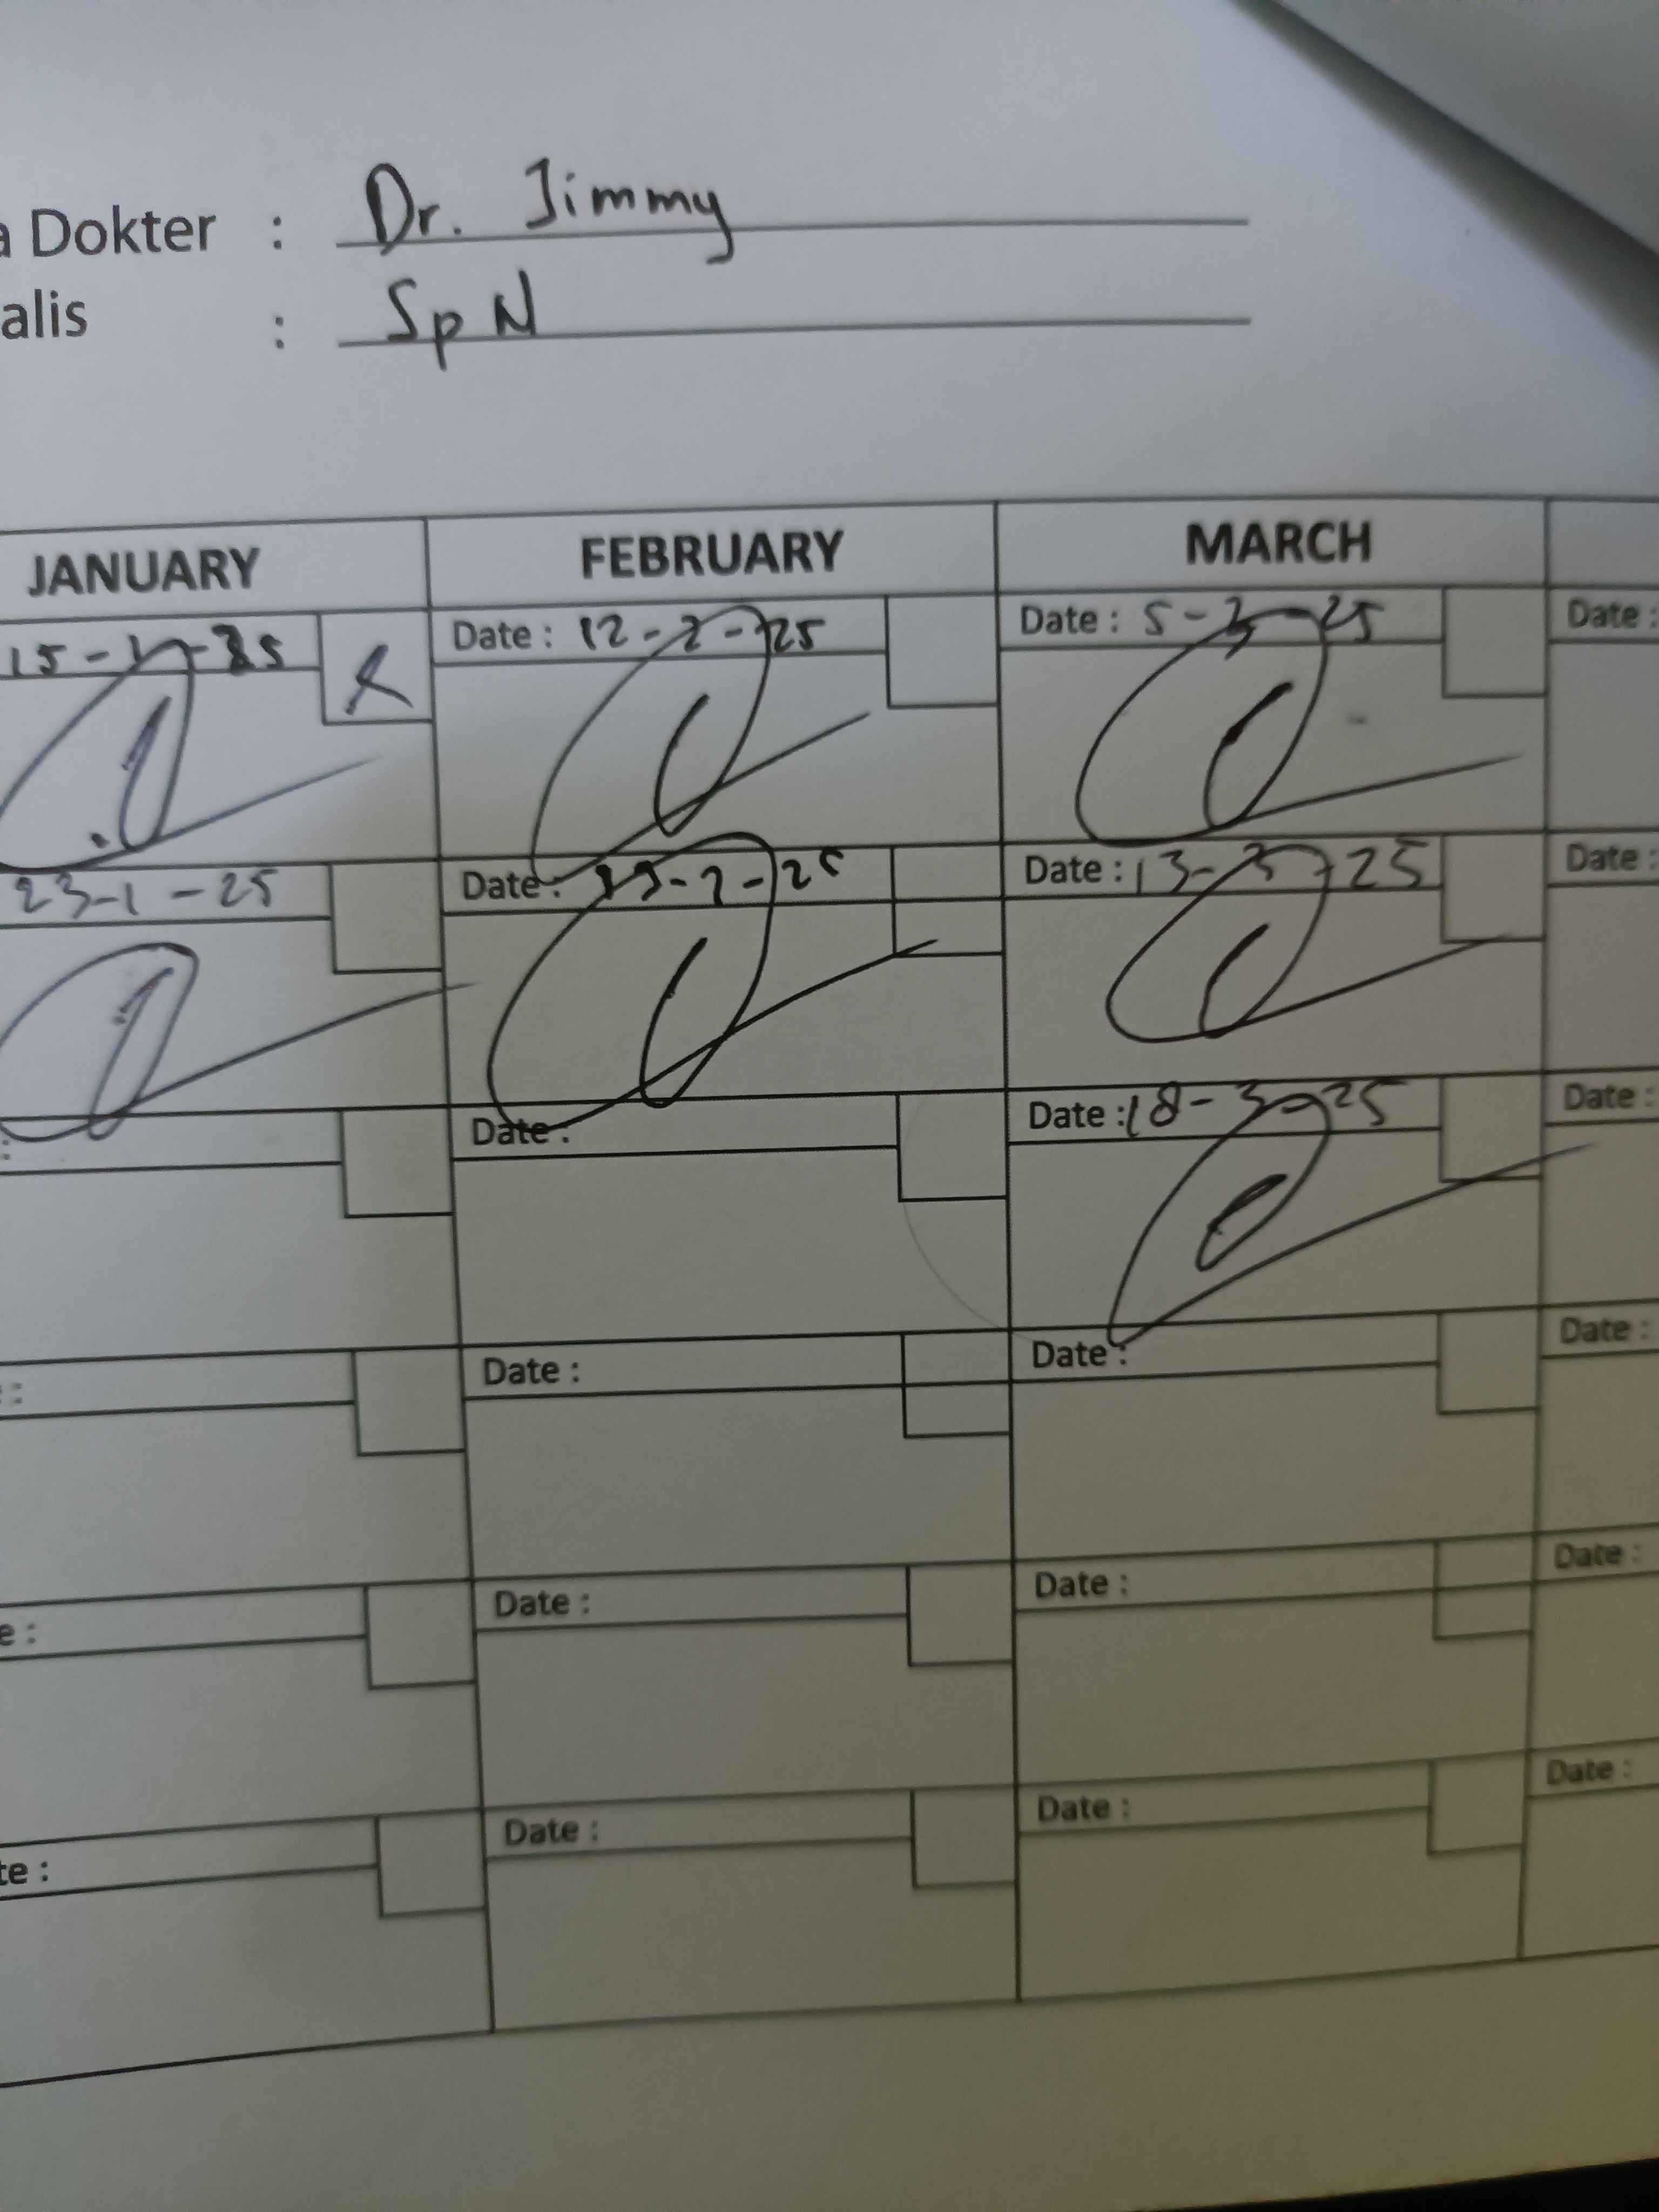 a Dokter : Dr. Jimmy
alis : Sp N
JANUARY FEBRUARY MARCH
15-1-25 Date : 12-2-25 Date : 5-3-25 Date :
23-1-25 Date : -2-25 Date : 13-3-25 Date :
: Date : Date : 18-3-25 Date :
: Date : Date : Date :
e : Date : Date : Date :
te : Date : Date : Date :